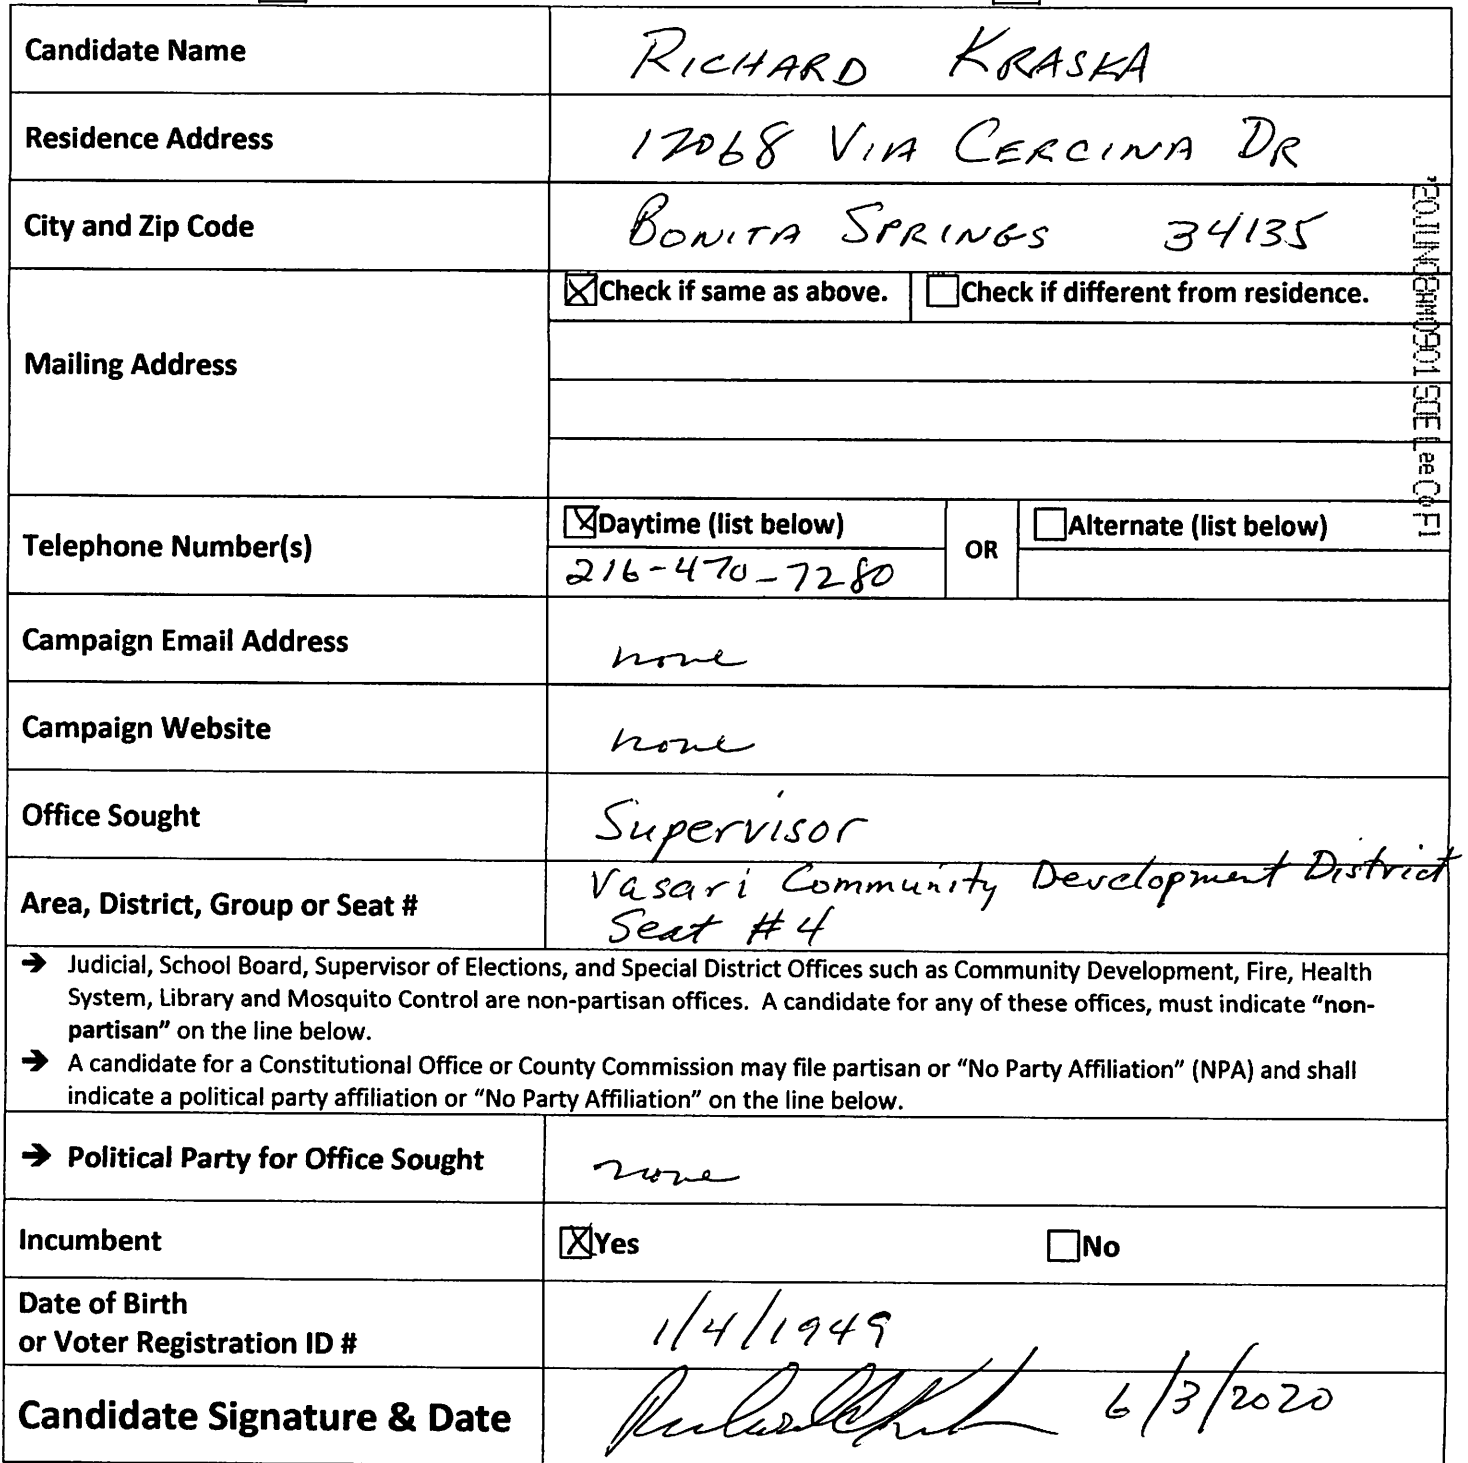 Candidate Name RICHARD KRASKA
Residence Address 12068 VIA CERCINA DR
City and Zip Code BONITA SPRINGS 34135
Mailing Address
Check if same as above. Check if different from residence.
Telephone Number(s)
Daytime (list below) OR Alternate (list below)
216-470-7280
Campaign Email Address none
Campaign Website none
Office Sought Supervisor
Area, District, Group or Seat # Vasari Community Development District
Seat #4
➔ Judicial, School Board, Supervisor of Elections, and Special District Offices such as Community Development, Fire, Health
System, Library and Mosquito Control are non-partisan offices. A candidate for any of these offices, must indicate “non-
partisan” on the line below.
➔ A candidate for a Constitutional Office or County Commission may file partisan or “No Party Affiliation” (NPA) and shall
indicate a political party affiliation or “No Party Affiliation” on the line below.
➔ Political Party for Office Sought none
Incumbent Yes No
Date of Birth
or Voter Registration ID # 1/4/1949
Candidate Signature & Date 6/3/2020
SOE Lee Co Fl